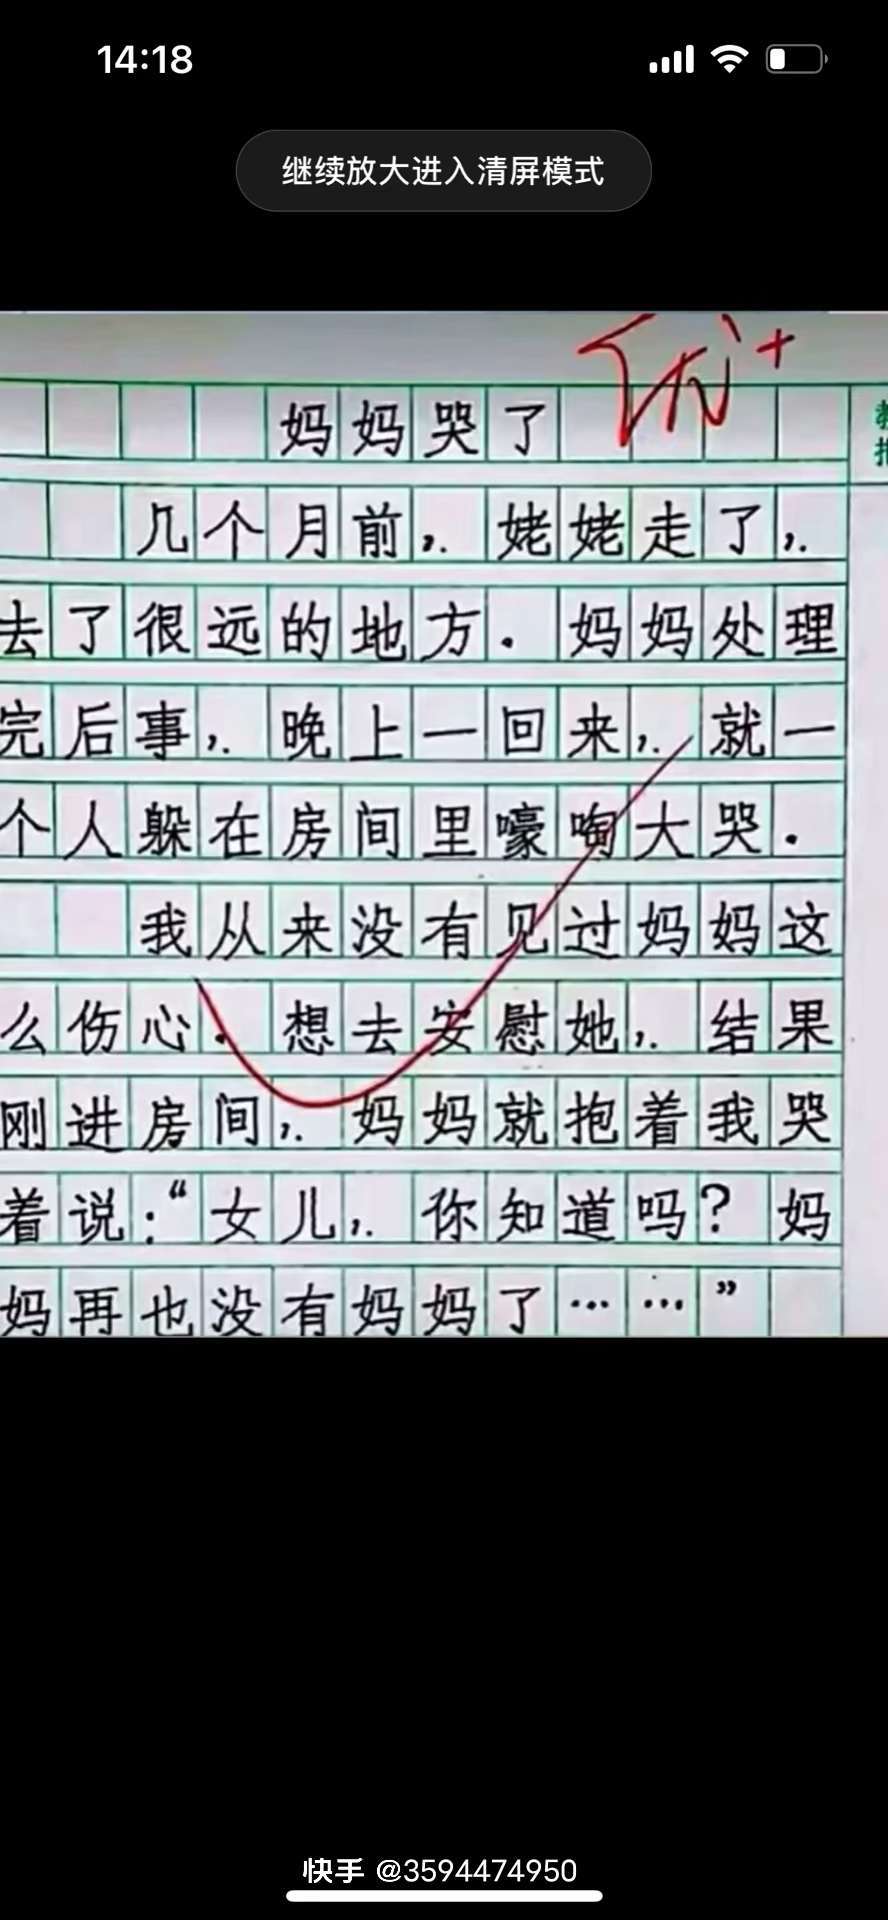 14:18
继续放大进入清屏模式
优+
妈妈哭了
几个月前，姥姥走了，
去了很远的地方.妈妈处理
完后事，晚上一回来，就一
个人躲在房间里嚎啕大哭.
我从来没有见过妈妈这
么伤心.想去安慰她，结果
刚进房间，妈妈就抱着我哭
着说：“女儿，你知道吗？妈
妈再也没有妈妈了……”
快手 @3594474950